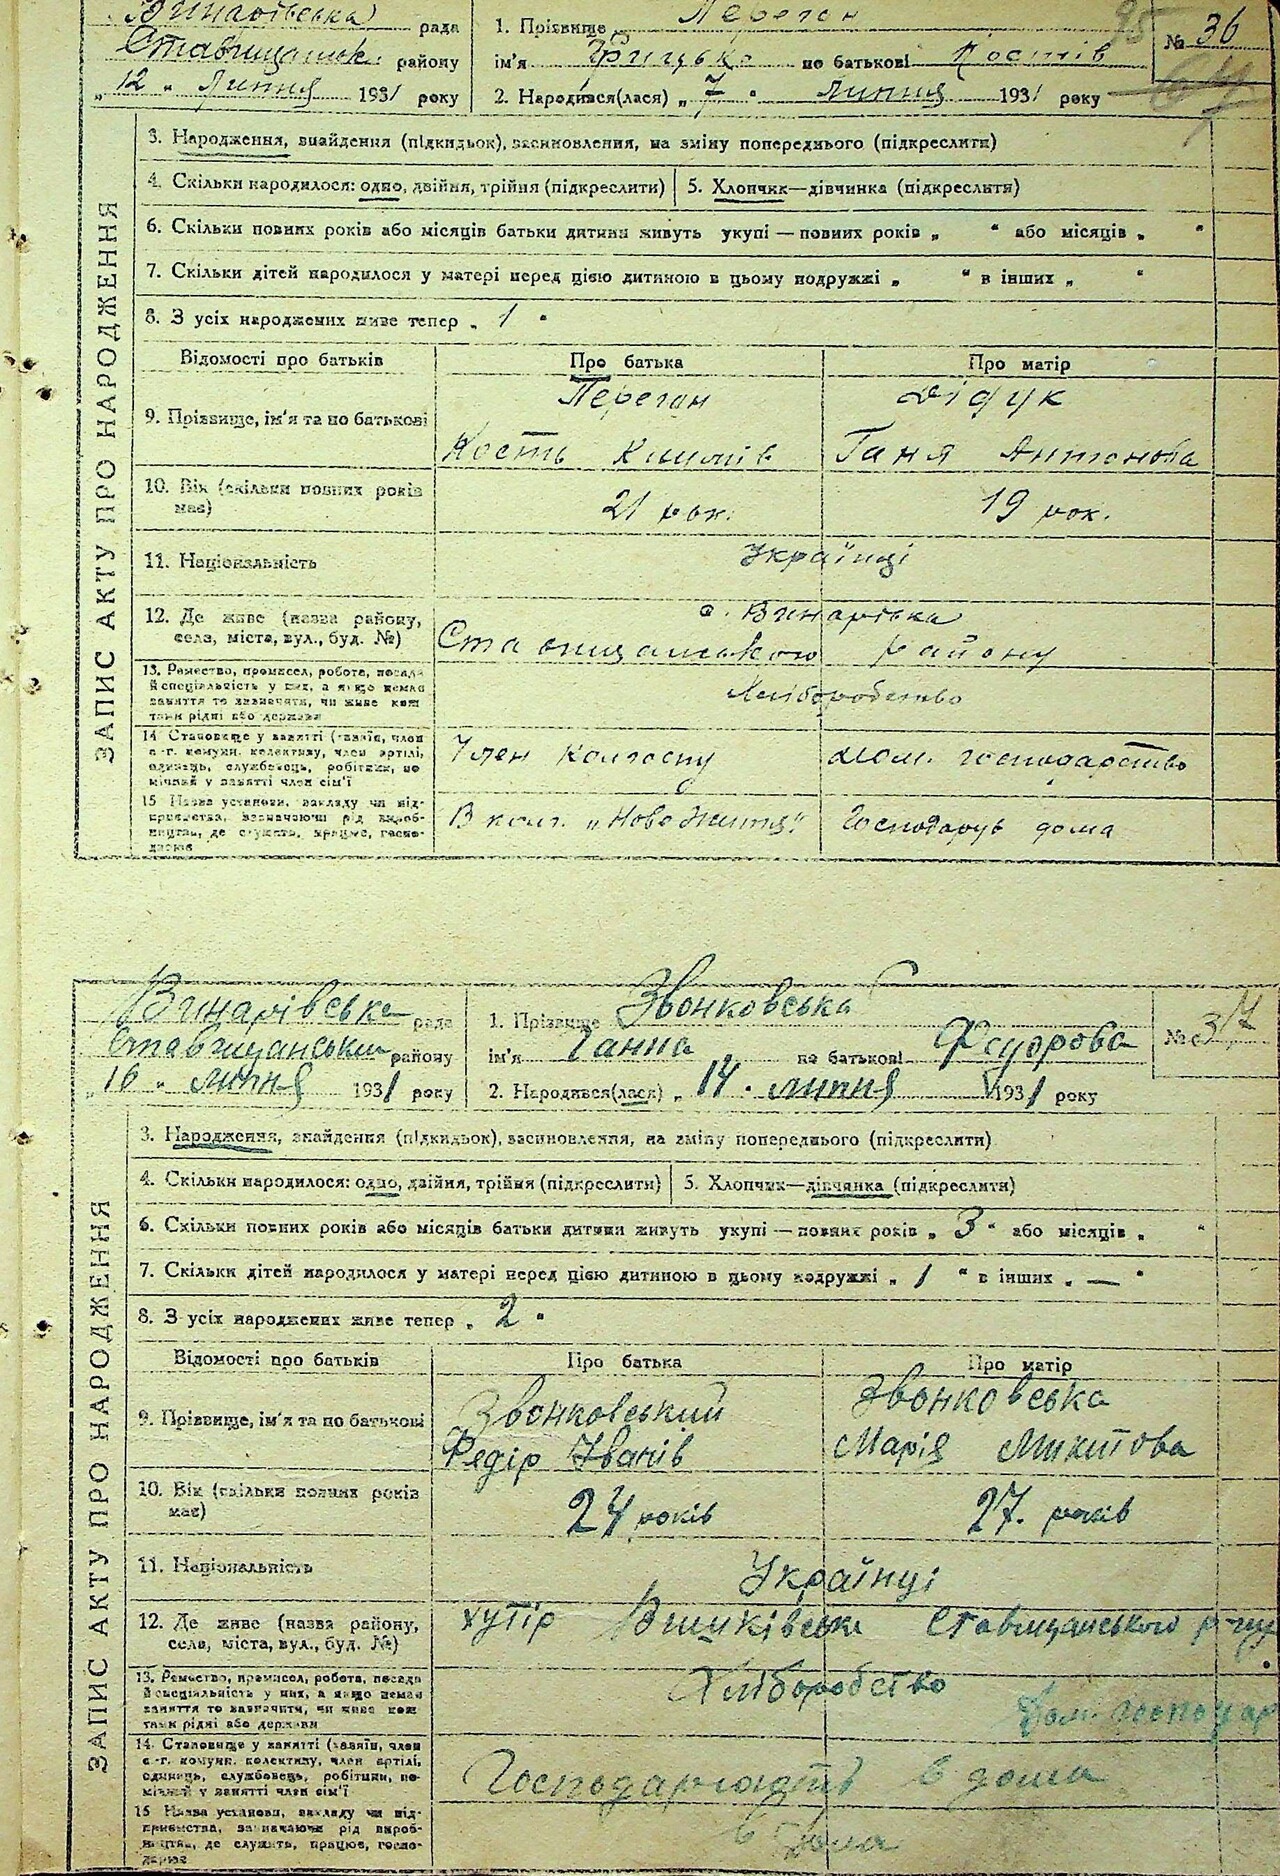 Винарівська рада
1. Прізвище Переган
№ 36
95
району
ім'я Грицько по батькові Костів
„12" Липня 1931 року
2. Народився(лася) „7" липня 1931 року
3. Народження, знайдення (підкидьок), засиновлення, на зміну попереднього (підкреслити)
4. Скільки народилося: одно, двійня, трійня (підкреслити)
5. Хлопчик—дівчинка (підкреслити)
6. Скільки повних років або місяців батьки дитини живуть укупі — повних років „ " або місяців „ "
7. Скільки дітей народилося у матері перед цією дитиною в цьому подружжі „ " в інших „ "
8. З усіх народжених живе тепер „ 1 "
ЗАПИС АКТУ ПРО НАРОДЖЕННЯ
Відомості про батьків
Про батька
Про матір
9. Прізвище, ім'я та по батькові
Переган
Дідук
Кость
Ганя Антонова
10. Вік (скільки повних років має)
21 рок.
19 рок.
11. Національність
Українці
12. Де живе (назва району, села, міста, вул., буд. №)
с. Винарівка
Ставищанського району
13. Ремество, промисел, робота, посада
й спеціяльність у них, а якщо немає
заняття то зазначити, чи живе кош
тами рідні або держави
Хліборобство
14 Становище у занятті (хазяїн, член
с-г. комуни, колективу, член артілі,
одинець, службовець, робітник, по
мічний у занятті член сім'ї
Член колгоспу
Дом. господарство
15 Назва установи, закладу чи під-
приємства, зазначаючи рід вироб-
ництва, де служить, працює, госпо-
дарює
В колг. „Нове Життя"
Господарує дома
Винарівська рада
1. Прізвище Звонковська
№ 37
Ставищанський району
ім'я Ганна по батькові Федорова
„16" липня 1931 року
2. Народився(лася) „14" липня 1931 року
3. Народження, знайдення (підкидьок), засиновлення, на зміну попереднього (підкреслити)
4. Скільки народилося: одно, двійня, трійня (підкреслити)
5. Хлопчик—дівчинка (підкреслити)
6. Скільки повних років або місяців батьки дитини живуть укупі — повних років „ 3 " або місяців „ "
7. Скільки дітей народилося у матері перед цією дитиною в цьому подружжі „ 1 " в інших „ — "
8. З усіх народжених живе тепер „ 2 "
ЗАПИС АКТУ ПРО НАРОДЖЕННЯ
Відомості про батьків
Про батька
Про матір
9. Прізвище, ім'я та по батькові
Звонковський
Звонковська
Федір Іванів
Марія Микитова
10. Вік (скільки повних років має)
24 років
27. років
11. Національність
Українці
12. Де живе (назва району, села, міста, вул., буд. №)
хутір Ставищанського р-ну
13. Ремество, промисел, робота, посада
й спеціяльність у них, а якщо немає
заняття то зазначити, чи живе кош
тами рідні або держави
Хліборобство
Дом. господар
14. Становище у занятті (хазяїн, член
с-г. комуни, колективу, член артілі,
одинець, службовець, робітник, по-
мічний у занятті член сім'ї
Господарюють в дома
15 Назва установи, закладу чи під-
приємства, зазначаючи рід вироб-
ництва, де служить, працює, госпо-
дарює
в дома